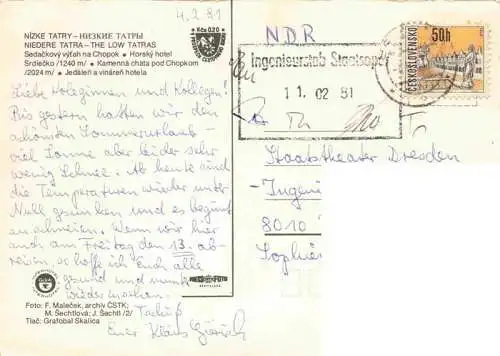 4.2.81
NÍZKE TATRY – НИЗКИЕ ТАТРЫ
NIEDERE TATRA – THE LOW TATRAS
Sedačkový výťah na Chopok • Horský hotel
Srdiečko /1240 m/ • Kamenná chata pod Chopkom
/2024 m/ • Jedáleň a vináreň hotela
Kčs 0.20
Liebe Kolleginnen und Kollegen!
Bis gestern hatten wir den
schönsten Sommerurlaub –
viel Sonne aber leider sehr
wenig Schnee. Ab heute sind
die Temperaturen wieder unter
Null gesunken und es beginnt
zu schneien. Wenn wir hier
auch am Freitag den 13. ab-
reisen, so hoffe ich Euch alle
gesund und munter
wieder
Euer Klaus
Foto: F. Maleček, archív ČSTK;
M. Šechtlová; J. Šechtl /2/
Tlač: Grafobal Skalica
PRESSFOTO
NDR
Ingenieurstab Staatsoper
11. 02 81
50h
ČESKOSLOVENSKO
Staatstheater Dresden
Ingenie
8010
Sophie